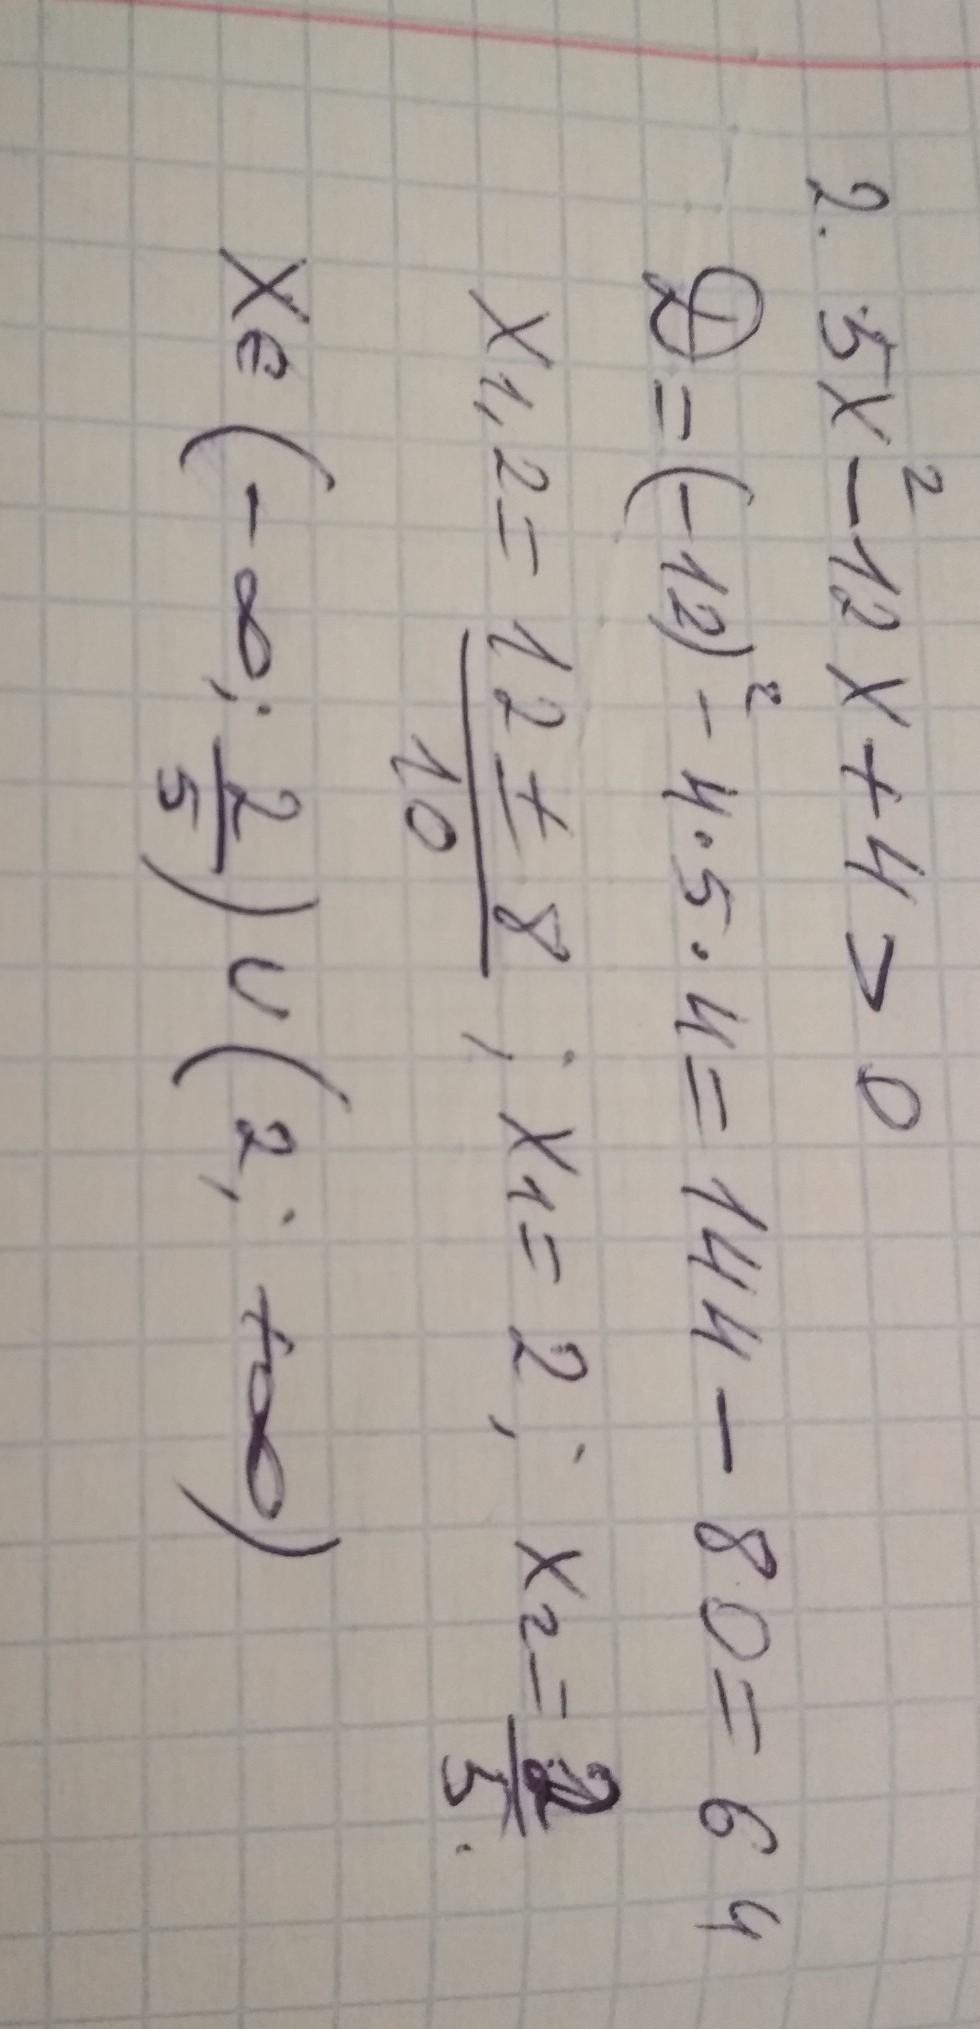 2. 5x² - 12x + 4 > 0
D = (-12)² - 4·5·4 = 144 - 80 = 64
x1,2 = (12 ± 8)/10 ; x1 = 2 ; x2 = 2/5.
x∈(-∞; 2/5)∪(2; +∞)